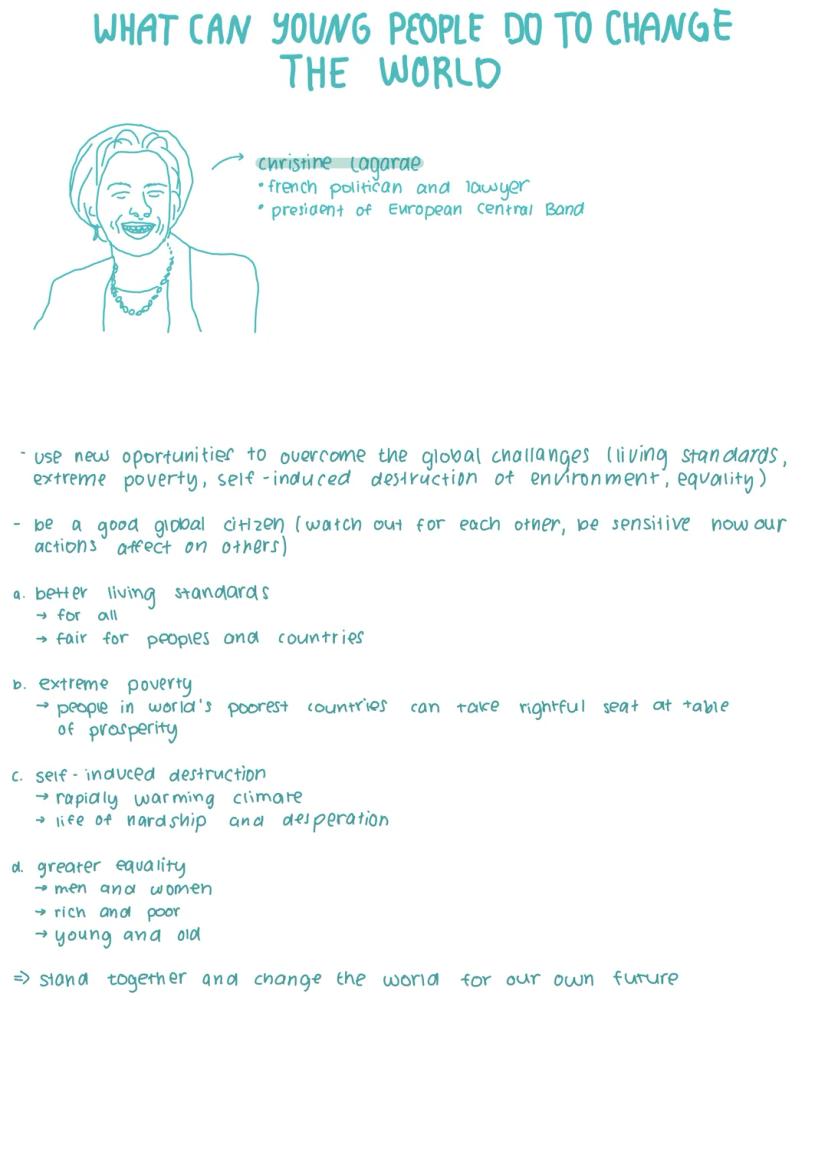 WHAT CAN YOUNG PEOPLE DO TO CHANGE
THE WORLD
christine lagarde
• french politican and lawyer
• president of European Central Band
- use new oportunities to overcome the global challanges (living standards,
extreme poverty, self-induced destruction of environment, equality)
- be a good global citizen (watch out for each other, be sensitive how our
actions affect on others)
a. better living standards
→ for all
→ fair for peoples and countries
b. extreme poverty
→ people in world's poorest countries can take rightful seat at table
of prosperity
c. self-induced destruction
→ rapidly warming climate
→ life of hardship and desperation
d. greater equality
→ men and women
→ rich and poor
→ young and old
⇒ stand together and change the world for our own future